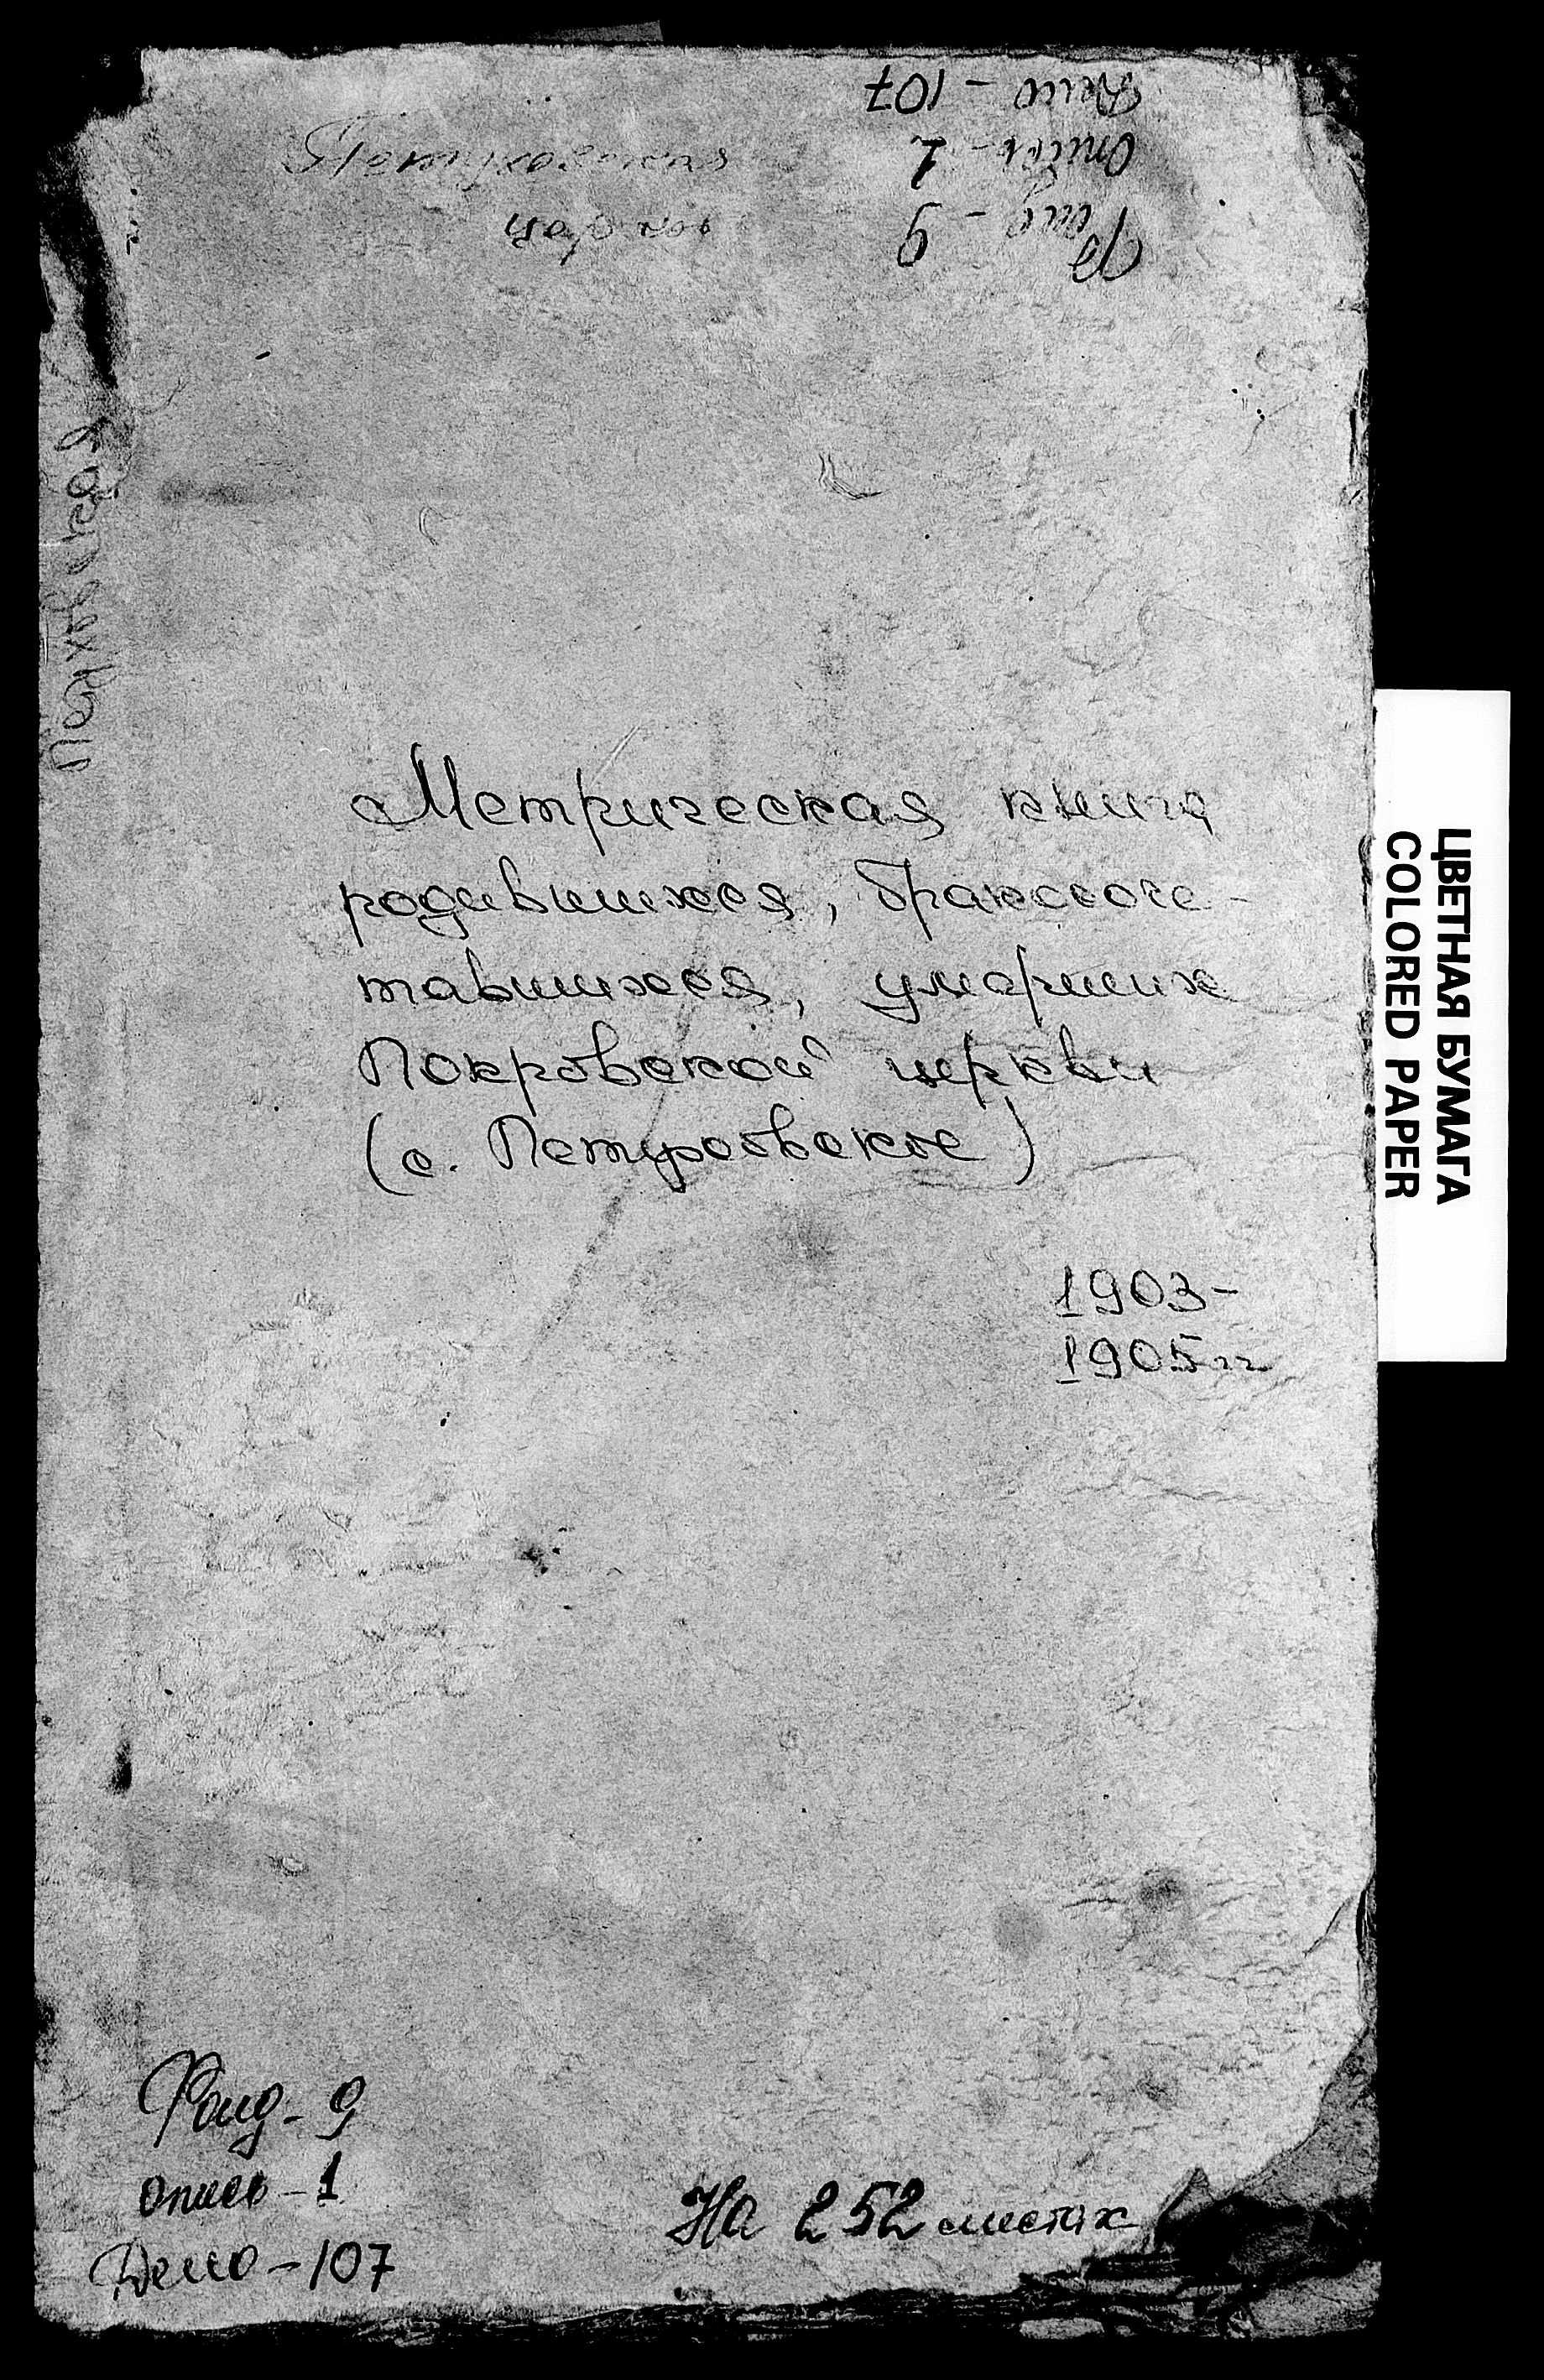 Дело - 107
Опись - 1
Фонд - 9
церковь
Метрическая книга
родившихся, бракосоче-
тавшихся, умерших
Покровской церкви
(с. Петровское)
1903-
1905 гг
Фонд - 9
опись - 1
Дело - 107
На 252 листах
ЦВЕТНАЯ БУМАГА
COLORED PAPER